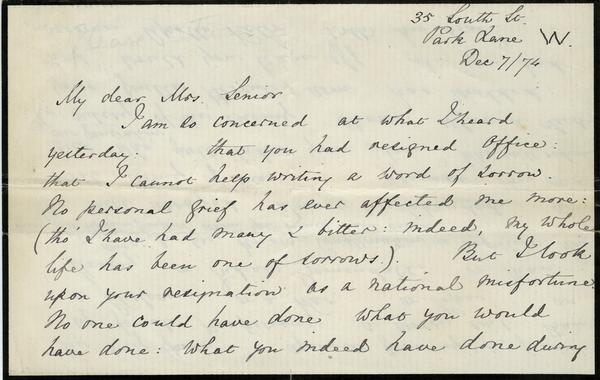 35 South St.
Park Lane W.
Dec 7/74
My dear Mrs. Senior
I am so concerned at what I heard
yesterday: that you had resigned Office:
that I cannot help writing a word of sorrow.
No personal grief has ever affected me more:
(tho' I have had many & bitter: indeed, my whole
life has been one of sorrows.). But I look
upon your resignation as a national misfortune.
No one could have done what you would
have done: what you indeed have done during